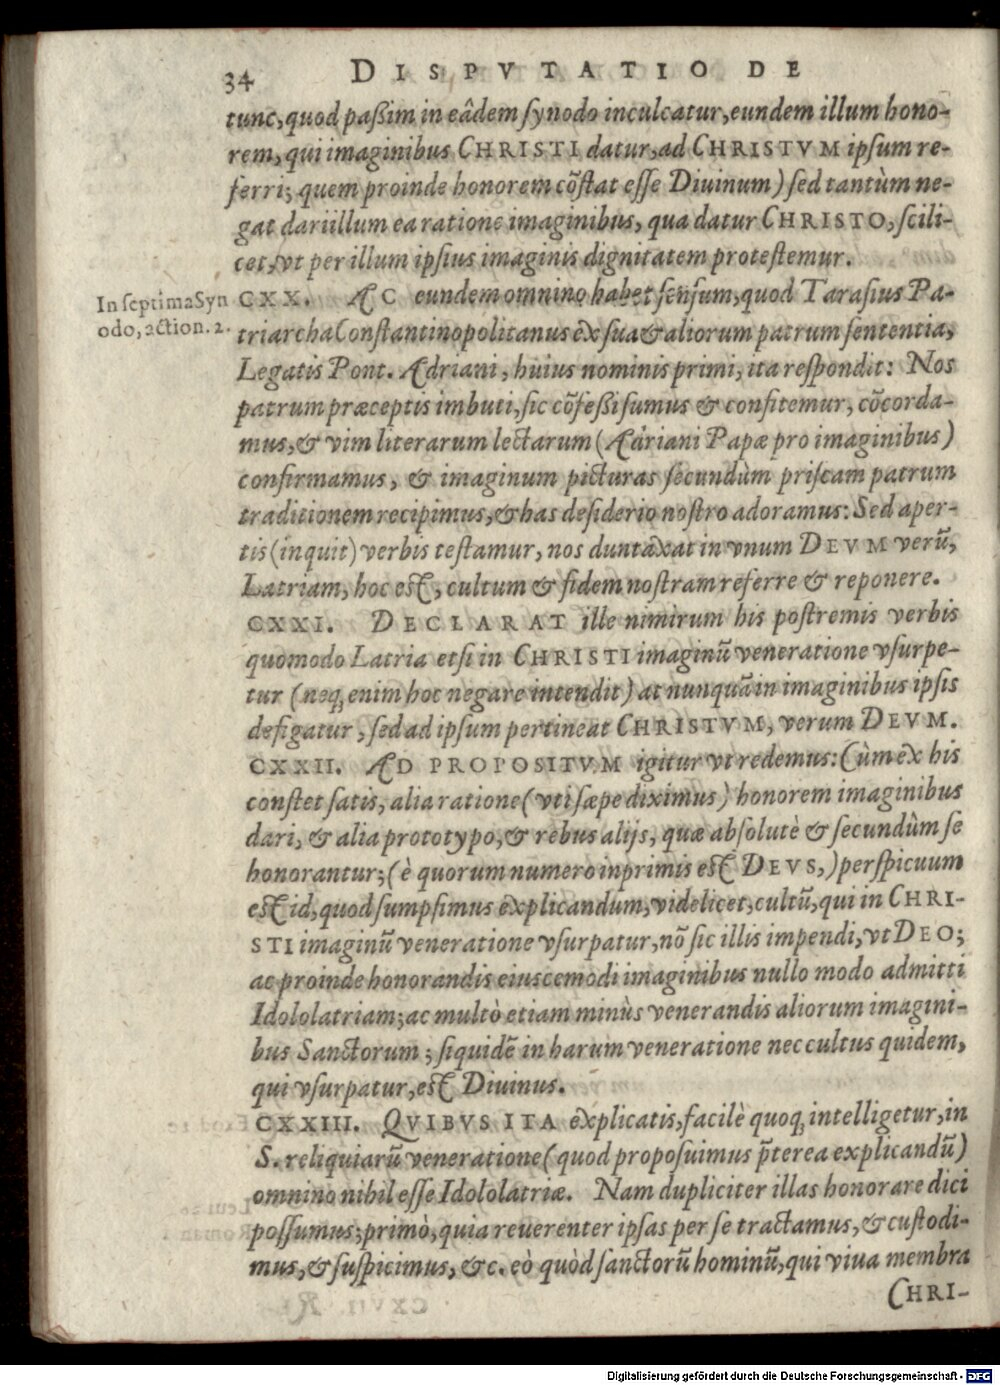 34 DISPVTATIO DE
tunc, quod paßim in eâdem synodo inculcatur, eundem illum hono-
rem, qui imaginibus CHRISTI datur, ad CHRISTVM ipsum re-
ferri; quem proinde honorem cõstat esse Diuinum) sed tantùm ne-
gat dari illum ea ratione imaginibus, qua datur CHRISTO, scili-
cet, vt per illum ipsius imaginis dignitatem protestemur.
In septima Syn
odo, action. 2.
CXX. AC eundem omnino habet sensum, quod Tarasius Pa-
triarcha Constantinopolitanus ex sua & aliorum patrum sententia,
Legatis Pont. Adriani, huius nominis primi, ita respondit: Nos
patrum præceptis imbuti, sic cõfeßi sumus & confitemur, cõcorda-
mus, & vim literarum lectarum (Adriani Papæ pro imaginibus)
confirmamus, & imaginum picturas secundùm priscam patrum
traditionem recipimus, & has desiderio nostro adoramus: Sed aper-
tis (inquit) verbis testamur, nos duntaxat in vnum DEVM verũ,
Latriam, hoc est, cultum & fidem nostram referre & reponere.
CXXI. DECLARAT ille nimirum his postremis verbis
quomodo Latria etsi in CHRISTI imaginũ veneratione vsurpe-
tur (neq; enim hoc negare intendit) at nunquã in imaginibus ipsis
defigatur, sed ad ipsum pertineat CHRISTVM, verum DEVM.
CXXII. AD PROPOSITVM igitur vt redemus: Cùm ex his
constet satis, alia ratione (vti sæpe diximus) honorem imaginibus
dari, & alia prototypo, & rebus alijs, quæ absolutè & secundùm se
honorantur; (è quorum numero inprimis est DEVS,) perspicuum
est id, quod sumpsimus explicandum, videlicet, cultũ, qui in CHRI-
STI imaginũ veneratione vsurpatur, nõ sic illis impendi, vt DEO;
ac proinde honorandis eiuscemodi imaginibus nullo modo admitti
Idololatriam; ac multò etiam minùs venerandis aliorum imagini-
bus Sanctorum; siquidẽ in harum veneratione nec cultus quidem,
qui vsurpatur, est Diuinus.
CXXIII. QVIBVS ITA explicatis, facilè quoq; intelligetur, in
S. reliquiarũ veneratione (quod proposuimus p̃terea explicandũ)
omnino nihil esse Idololatriæ. Nam dupliciter illas honorare dici
possumus; primò, quia reuerenter ipsas per se tractamus, & custodi-
mus, & suspicimus, &c. eò quòd sanctorũ hominũ, qui viua membra
CHRI-
Digitalisierung gefördert durch die Deutsche Forschungsgemeinschaft - DFG